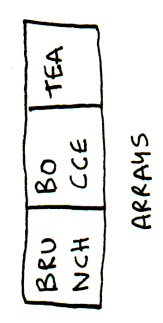 BRU
NCH
BO
CCE
TEA
ARRAYS